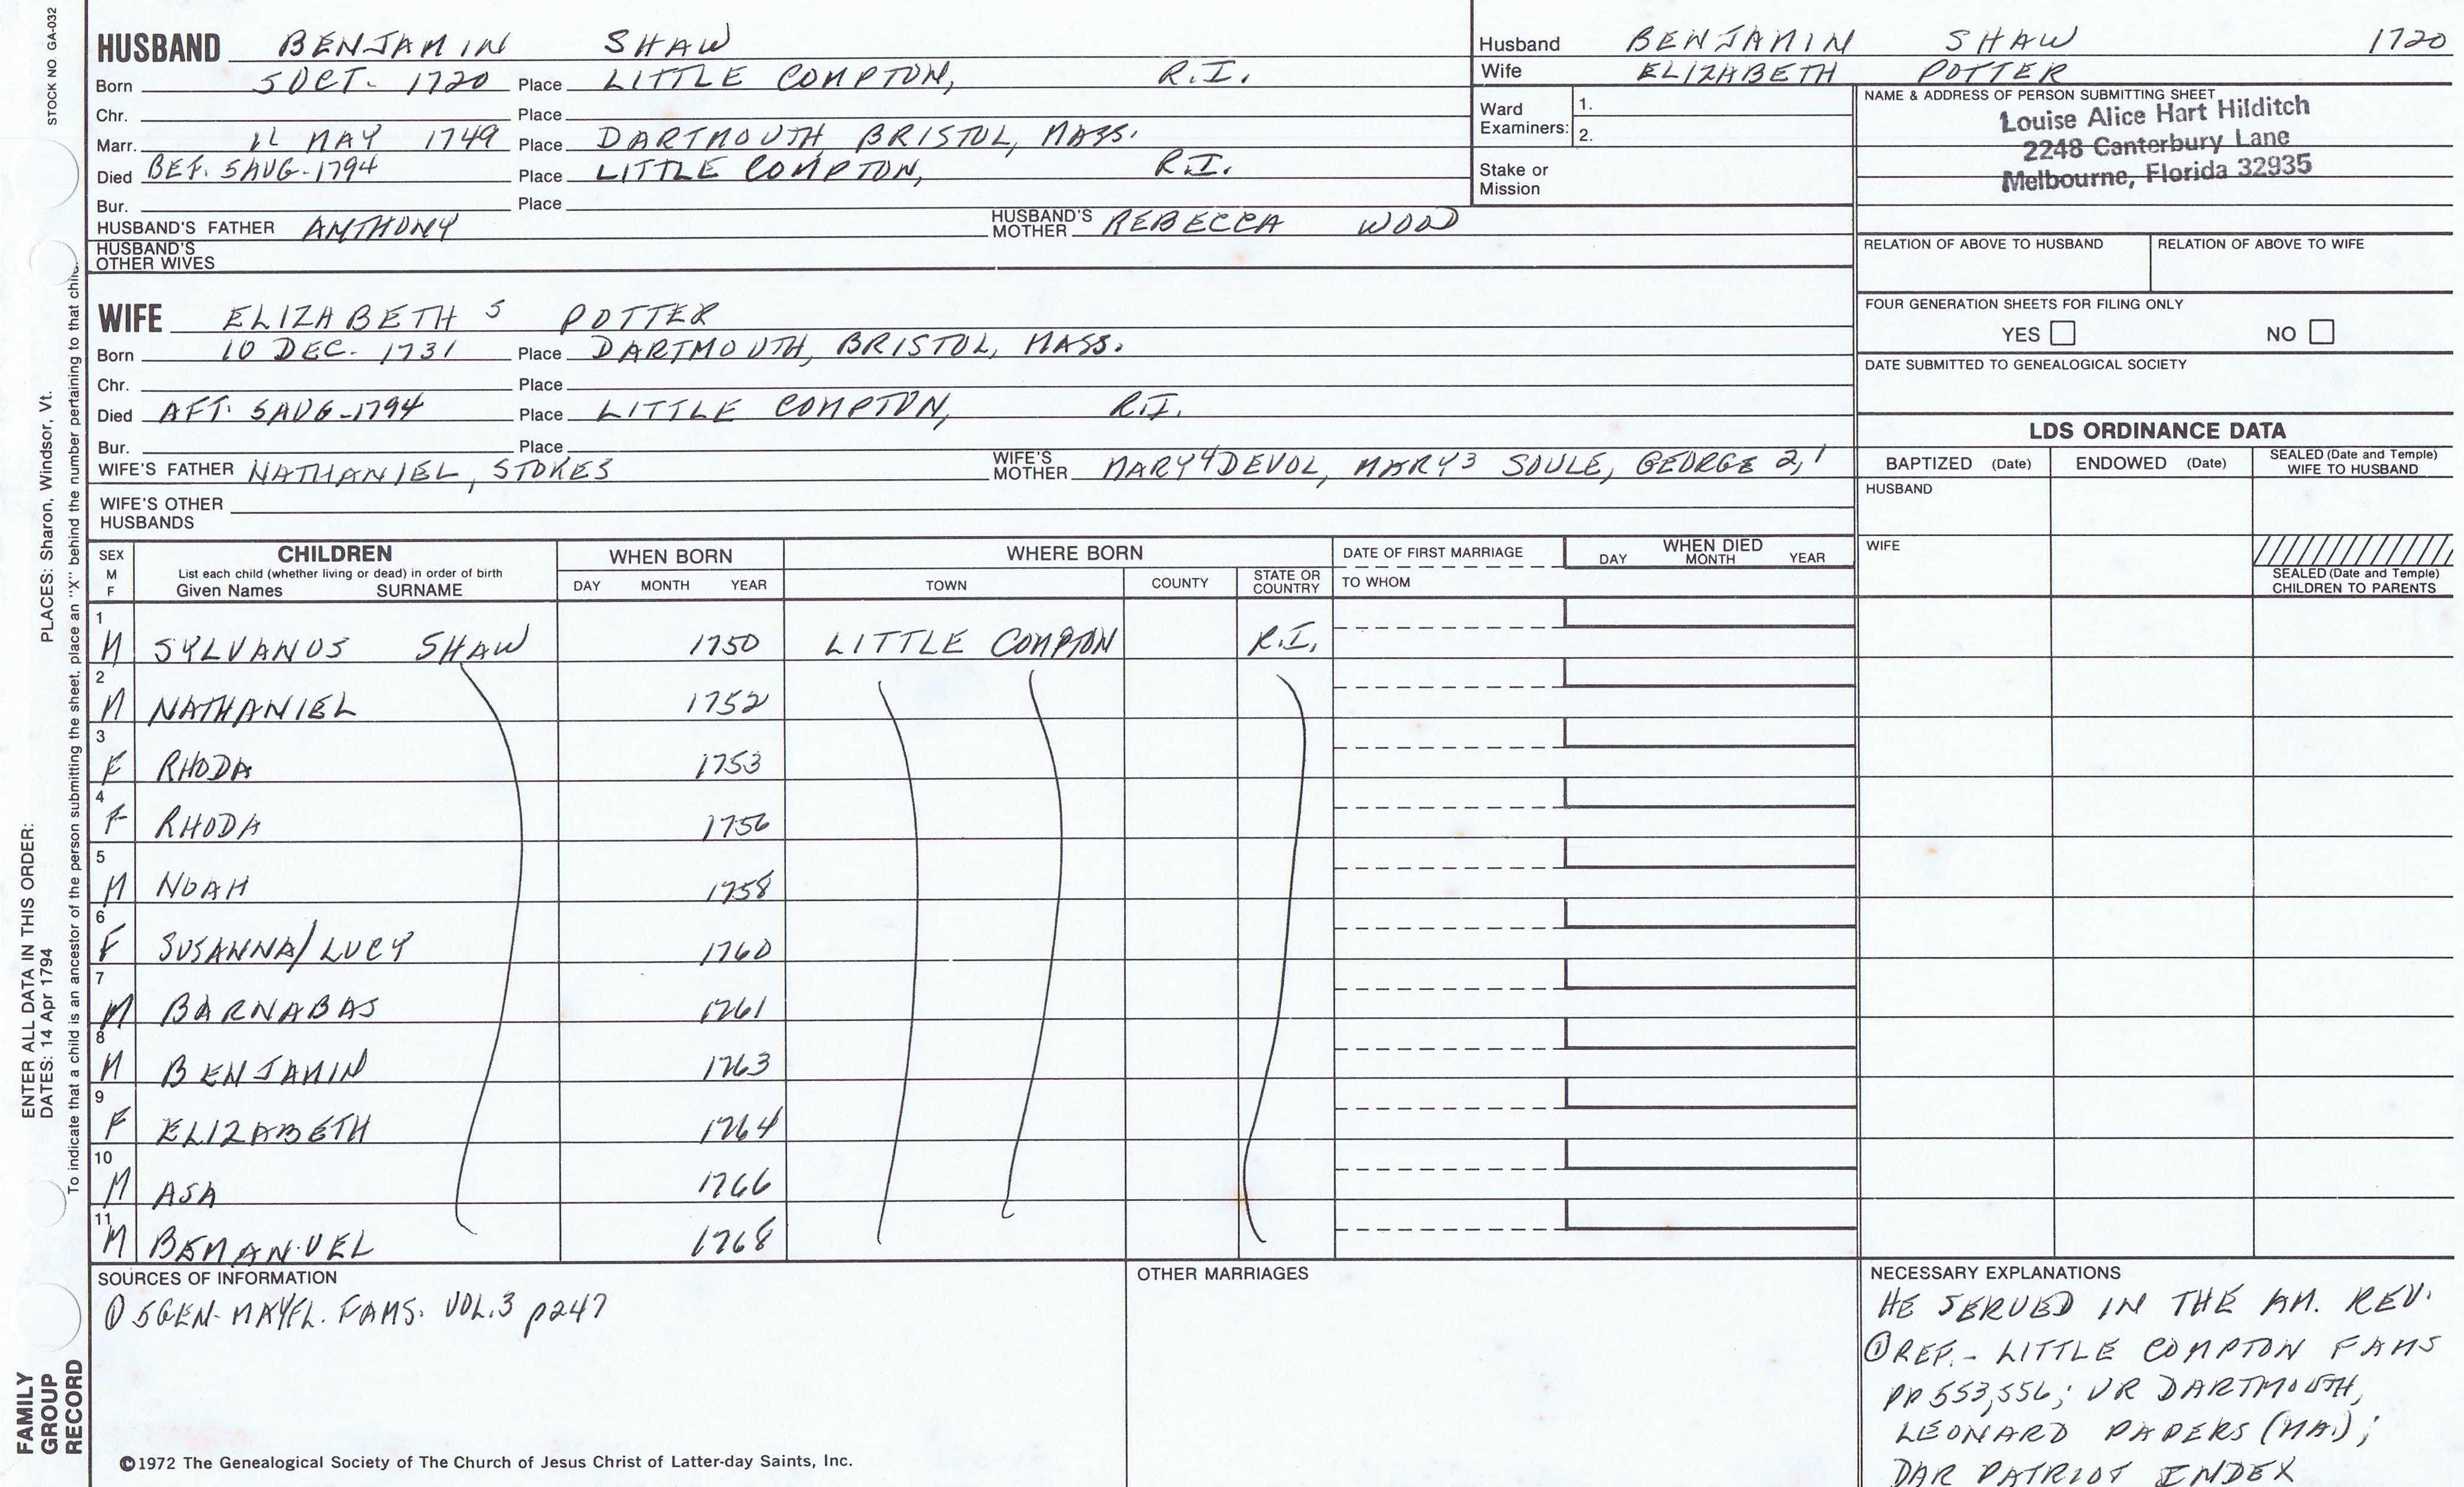 STOCK NO GA-032
HUSBAND BENJAMIN SHAW
Born 5 OCT. 1720 Place LITTLE COMPTON, R.I.
Chr. Place
Marr. MAY 1749 Place DARTMOUTH, BRISTOL, MASS.
Died BEF. 5 AUG-1794 Place LITTLE COMPTON, R.I.
Bur. Place
HUSBAND'S FATHER ANTHONY HUSBAND'S MOTHER REBECCA WOOD
HUSBAND'S OTHER WIVES
WIFE ELIZABETH 5 POTTER
Born 10 DEC. 1731 Place DARTMOUTH, BRISTOL, MASS.
Chr. Place
Died AFT. 5 AUG-1794 Place LITTLE COMPTON, R.I.
Bur. Place
WIFE'S FATHER NATHANIEL, STOKES WIFE'S MOTHER MARY 4 DEVOL, MARY 3 SOULE, GEORGE 2, 1
WIFE'S OTHER HUSBANDS
Husband BENJAMIN SHAW 1720
Wife ELIZABETH POTTER
Ward Examiners: 1.
2.
Stake or Mission
NAME & ADDRESS OF PERSON SUBMITTING SHEET
Louise Alice Hart Hilditch
2248 Canterbury Lane
Melbourne, Florida 32935
RELATION OF ABOVE TO HUSBAND RELATION OF ABOVE TO WIFE
FOUR GENERATION SHEETS FOR FILING ONLY
YES NO
DATE SUBMITTED TO GENEALOGICAL SOCIETY
LDS ORDINANCE DATA
BAPTIZED (Date) ENDOWED (Date) SEALED (Date and Temple) WIFE TO HUSBAND
HUSBAND
WIFE
SEALED (Date and Temple) CHILDREN TO PARENTS
SEX M F CHILDREN WHEN BORN WHERE BORN DATE OF FIRST MARRIAGE WHEN DIED
List each child (whether living or dead) in order of birth
Given Names SURNAME DAY MONTH YEAR TOWN COUNTY STATE OR COUNTRY TO WHOM DAY MONTH YEAR
1 M SYLVANUS SHAW 1750 LITTLE COMPTON R.I.
2 M NATHANIEL 1752
3 F RHODA 1753
4 F RHODA 1756
5 M NOAH 1758
6 F SUSANNA/LUCY 1760
7 M BARNABAS 1761
8 M BENJAMIN 1763
9 F ELIZABETH 1764
10 M ASA 1766
11 M BEMANUEL 1768
SOURCES OF INFORMATION
① 5GEN-MAYFL. FAMS. VOL.3 p247
OTHER MARRIAGES
NECESSARY EXPLANATIONS
HE SERVED IN THE AM. REV.
① REF. - LITTLE COMPTON FAMS
PP 553,556; VR DARTMOUTH,
LEONARD PAPERS (MA.);
DAR PATRIOT INDEX
©1972 The Genealogical Society of The Church of Jesus Christ of Latter-day Saints, Inc.
FAMILY GROUP RECORD
ENTER ALL DATA IN THIS ORDER:
DATES: 14 Apr 1794 PLACES: Sharon, Windsor, Vt.
To indicate that a child is an ancestor of the person submitting the sheet, place an "X" behind the number pertaining to that child.